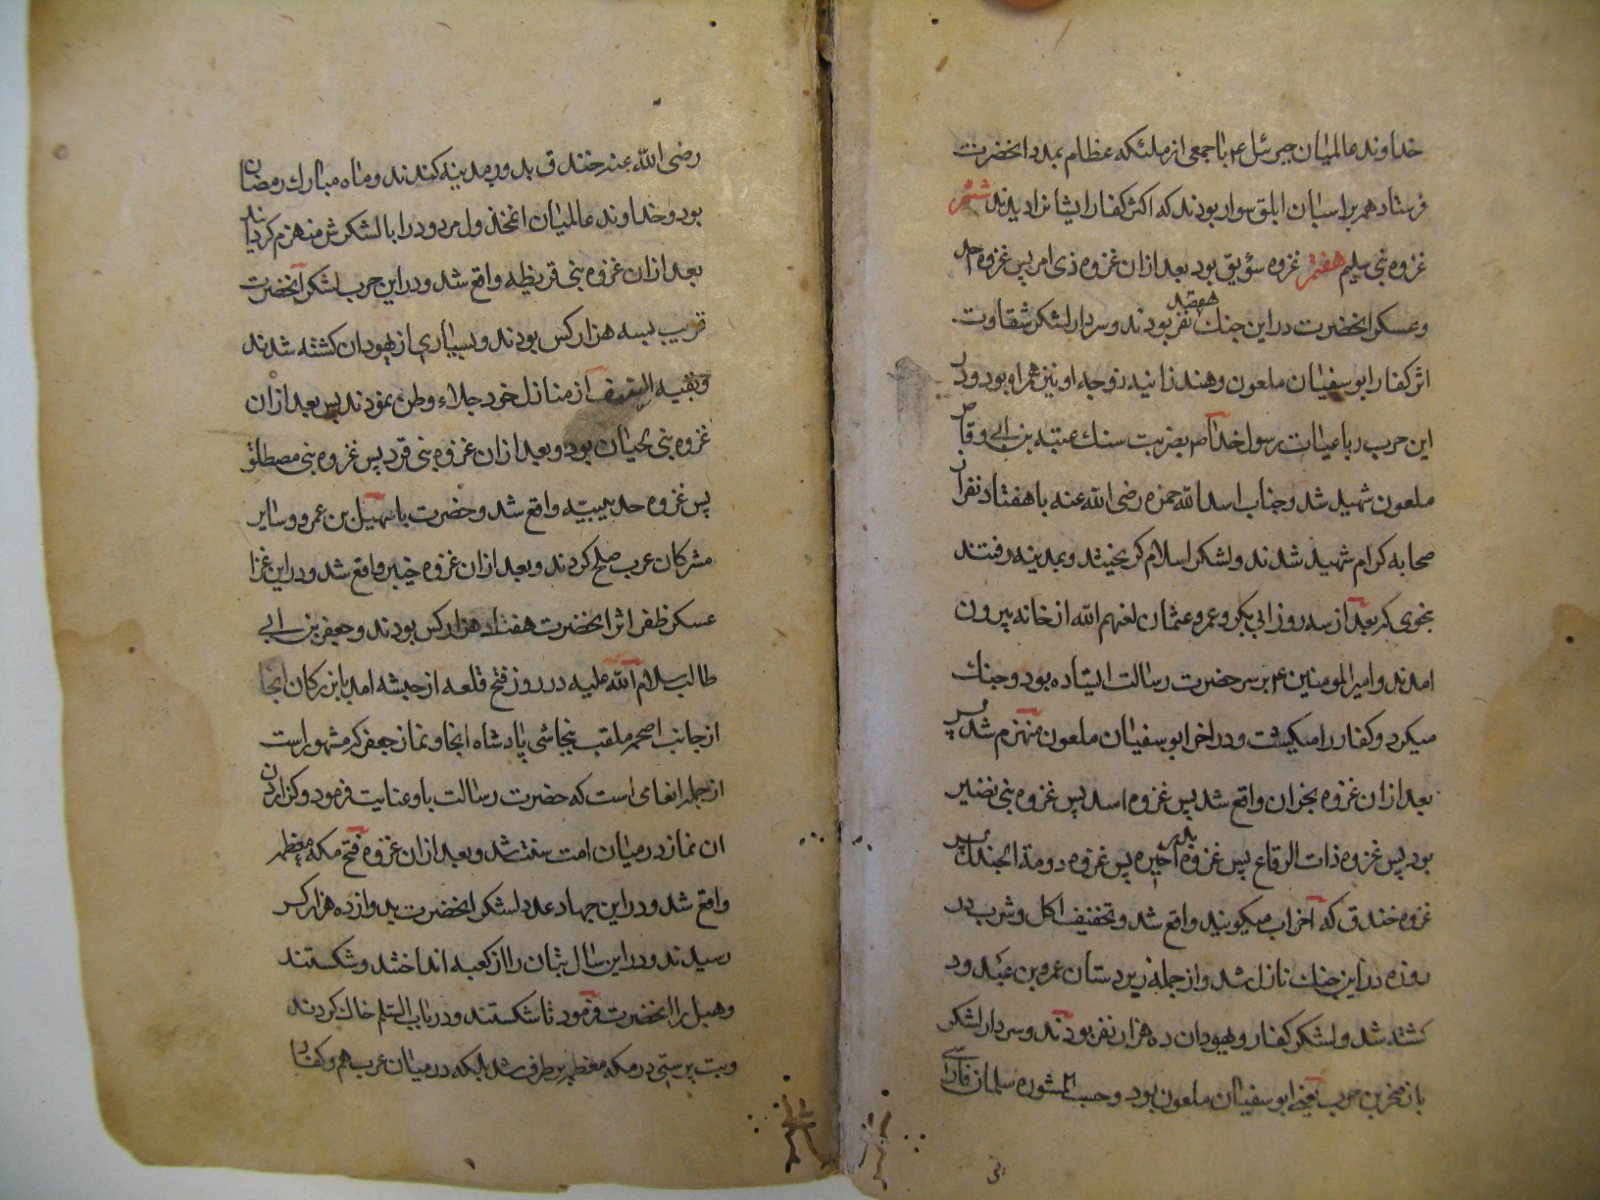 خداوند عالمیان جبرئیل ع باجمعی از ملئکه عظام بمدد انحضرت
فرستاد همه بر اسبان ابلق سوار بودند که اکثر کفار ایشانرا دیدند ششم
غزوه بنی سلیم هفتم غزوه سویق بود بعد ازان غزوه ذی امر پس غزوه احد
وعسکر انحضرت دراین جنک هفتصد نفر بودند وسردار لشکر شقاوت
اثر کفار ابوسفیان ملعون وهند زانیه زوجه او نیز همراه بود ودر
این حرب رباعیات رسول خدا ص بضربت سنک عتبه بن ابی وقاص
ملعون شهید شد وجناب اسد الله حمزه رضی الله عنه باهفتاد نفر از
صحابه کرام شهید شدند ولشکر اسلام کریختند وبمدینه رفتند
بنحوی که بعد از سه روز ابی بکر وعمر وعثمان لعنهم الله از خانه بیرون
امدند وامیر المومنین ع بر سر حضرت رسالت ایستاده بود وجنک
میکرد وکفار را میکشت ودر اخر ابو سفیان ملعون منهزم شد پس
بعد ازان غزوه بخران واقع شد پس غزوه اسد پس غزوه بنی نضیر
بود پس غزوه ذات الرقاع پس غزوه بدر اخیره پس غزوه دومة الجندل پس
غزوه خندق که احزاب میکویند واقع شد وتخفیف اکل وشرب در
روزه دراین جنک نازل شد واز جمله زبردستان عمرو بن عبدود
کشته شد ولشکر کفار ویهودان ده هزار نفر بودند وسردار لشکر
باز صخر بن حرب یعنی ابو سفیان ملعون بود وحسب المشوره سلمان فارسی
رضی الله عنه خندق بدور مدینه کندند وماه مبارک رمضان
بود وخداوند عالمیان انمخذول مردود را بالشکرش منهزم کردانید
بعد ازان غزوه بنی قریظه واقع شد ودراین حرب لشکر انحضرت
قریب بسه هزار کس بودند وبسیاری از یهودان کشته شدند
وبقیه السیف از منازل خود جلاء وطن نمودند پس بعد ازان
غزوه بنی لحیان بود وبعد ازان غزوه بنی قرد پس غزوه بنی مصطلق
پس غزوه حدیبیه واقع شد وحضرت با سهیل بن عمرو وسایر
مشرکان عرب صلح کردند وبعد ازان غزوه خیبر واقع شد ودراین غزا
عسکر ظفر اثر انحضرت هفتاد هزار کس بودند وجعفر بن ابی
طالب سلام الله علیه در روز فتح قلعه از حبشه امد بابزرکان انجا
از جانب اصحمه ملقب بنجاشی پادشاه انجا ونماز جعفر که مشهور است
از جمله انعامی است که حضرت رسالت باو عنایت فرمود وکزاردن
ان نماز در میان امت سنت شد وبعد ازان غزوه فتح مکه معظمه
واقع شد ودراین جهاد عدد لشکر انحضرت بدوازده هزار کس
رسیدند ودراین سال بتان را از کعبه انداختند وشکستند
وهبل را انحضرت فرمود تا شکستند ودر باب السلم خاک کردند
وبت پرستی در مکه معظمه بر طرف شد بلکه در میان عرب هم وکفار